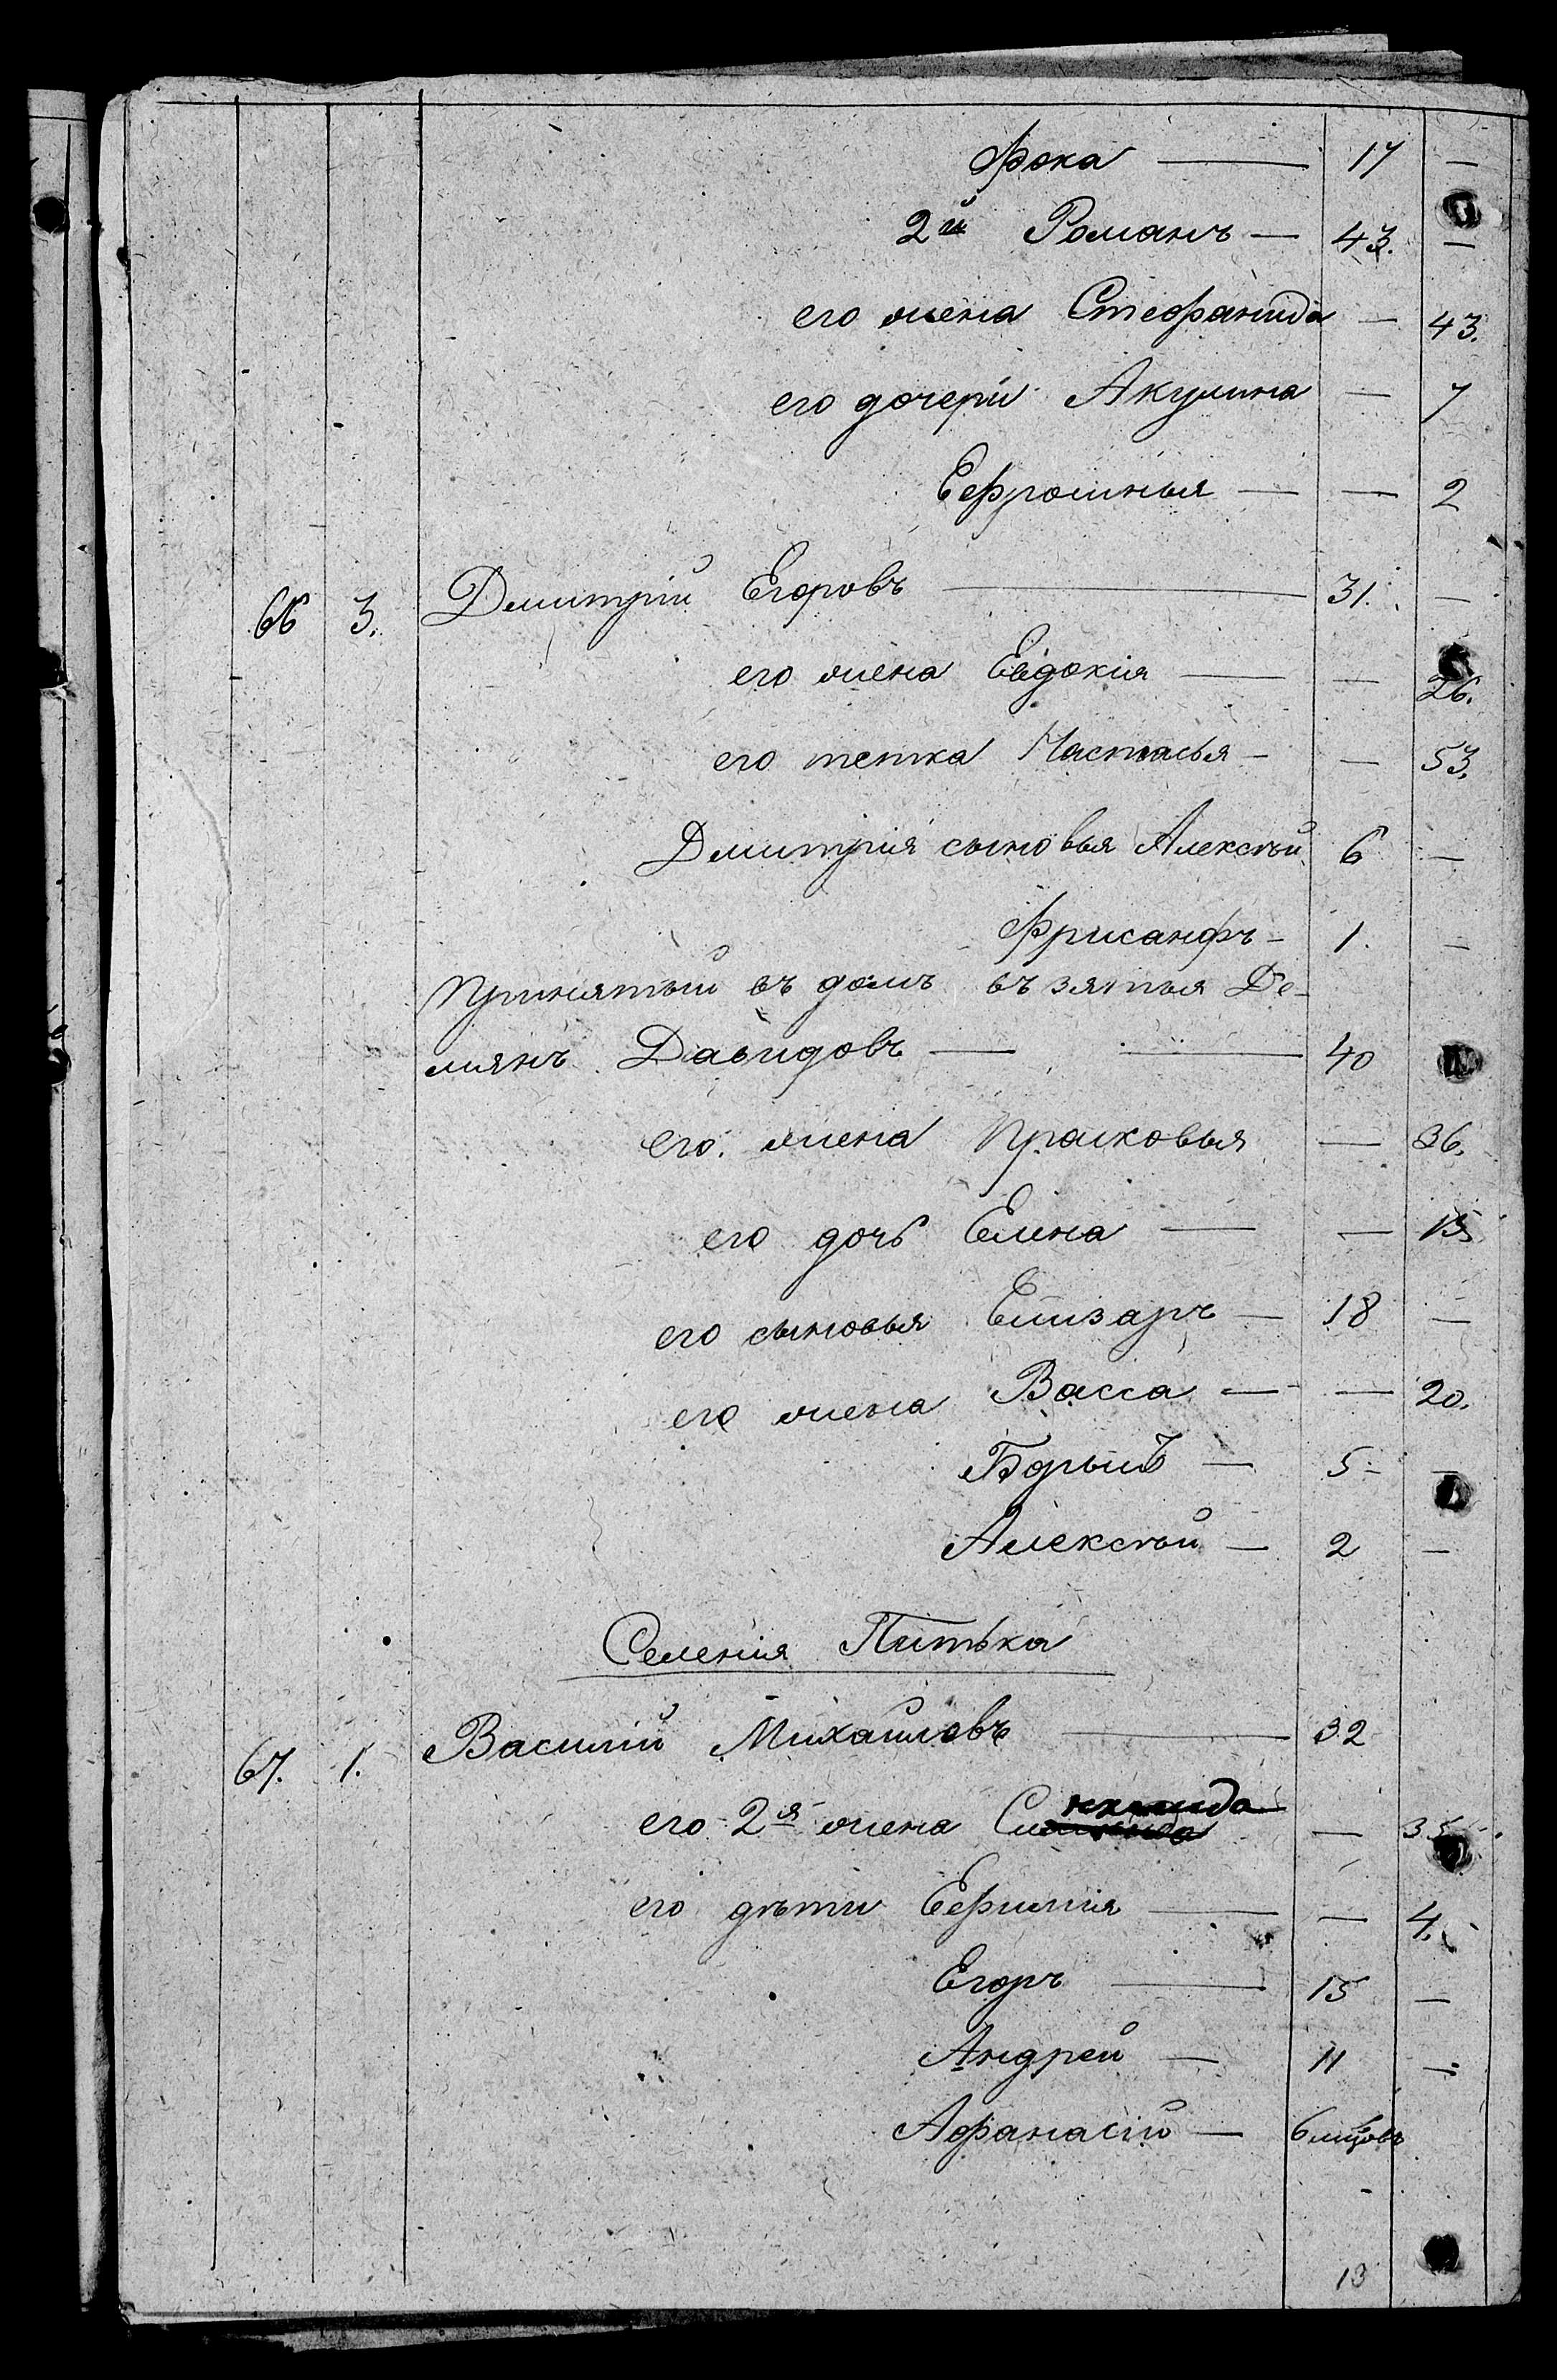 Фока — 17 —
2й Романъ — 43. —
его жена Стефанида — 43.
его дочери Акулина — 7
Ефросинья — — 2
66 3. Дмитрій Егоровъ — 31. —
его жена Евдокія — — 26.
его тетка Настасья — — 53.
Дмитрія сыновья Алексѣй 6 —
Фрисанфъ — 1. —
Принятый въ домъ въ зятья Де-
миянъ Давидовъ — — 40
его жена Прасковья — 36.
его дочь Елена — — 15
его сыновья Елизаръ — 18 —
его жена Васса — — 20.
5 — —
Алексѣй — 2 —
Селенія Питька
67. 1. Василій Михайловъ — 32
его 2я жена — 35
его дѣти Ефимія — — 4.
Егоръ — 15 —
Андрей — 11 —
Афанасій — 6 мцовъ
13